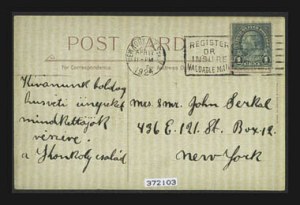 POST CARD
for Correspondence
REGISTER
OR
INSURE
VALUABLE MAIL
Kivanunk boldog
husveti ünepeket
mindkettöjök
részére
a Honkoly család
Mrs & Mr. John Serkal
436 E. 121. St. Box 12.
New York
372103